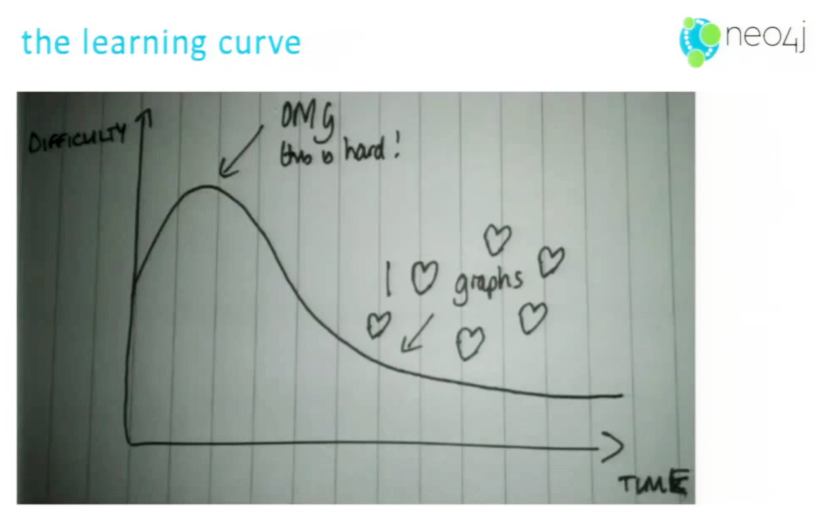 the learning curve
neo4j
DIFFICULTY
OMG
this is hard!
I ♡ graphs
TIME